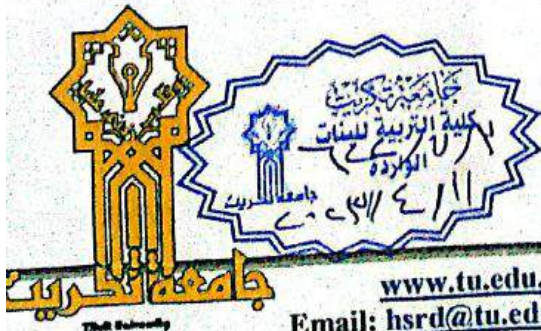 جامعة تكريت
كلية التربية للبنات
الوارده
جامعة تكريت
جامعة تكريت
Tikrit University
www.tu.edu.
Email: hsrd@tu.ed